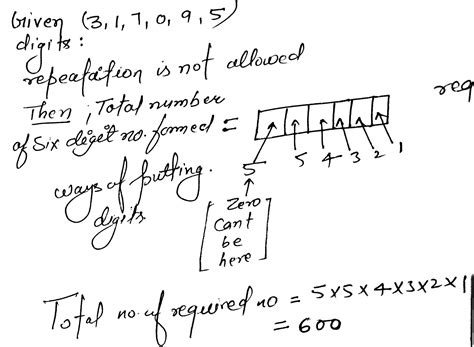 Given (3,1,7,0,9,5)
digits:
repeatation is not allowed
Then ; Total number
of Six digit no. formed =
ways of putting.
digits
req
5 5 4 3 2 1
Zero
Can't
be
here
Total no. of required no = 5×5×4×3×2×1
= 600